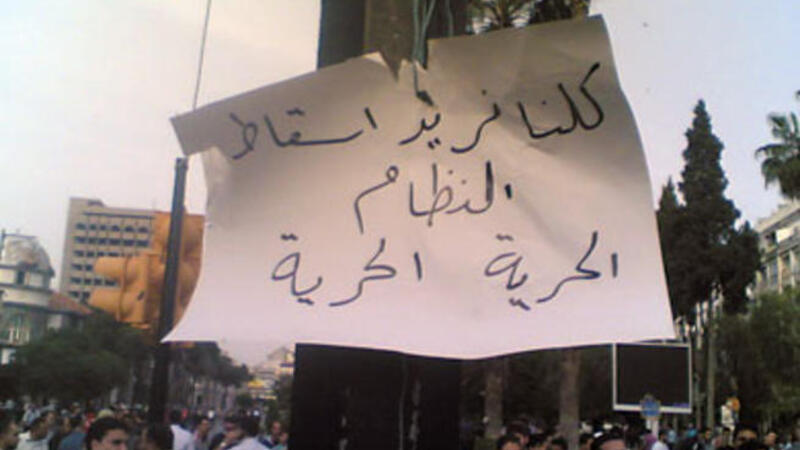 كلنا نريد اسقاط
النظام
الحرية الحرية